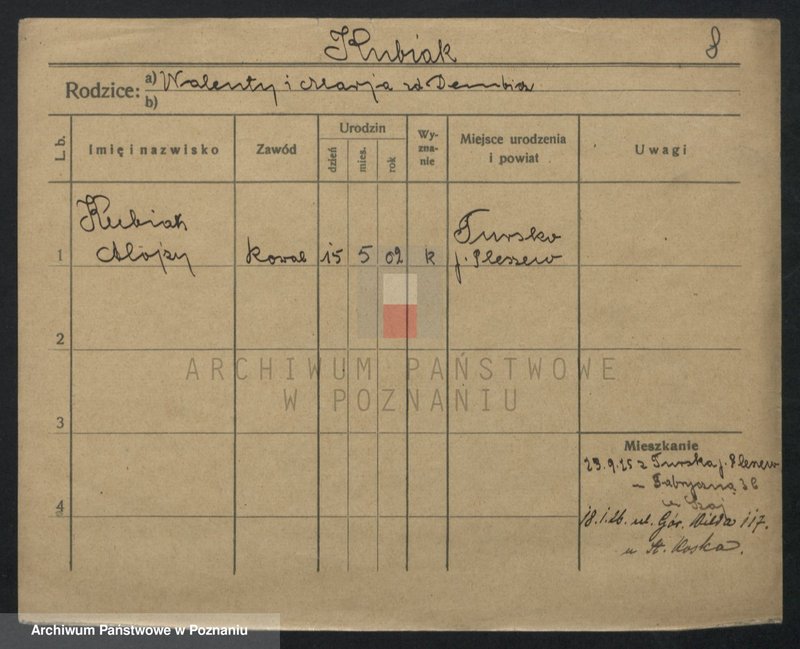 Kubiak 8
Rodzice: a) Walenty i Marja zd Dembia
b)
L. b. Imię i nazwisko Zawód Urodzin dzień mies. rok Wy-zna-nie Miejsce urodzenia i powiat Uwagi
1 Kubiak Alojzy kowal 15 5 02 k Tursko p. Pleszew
2
ARCHIWUM PAŃSTWOWE
W POZNANIU
3
Mieszkanie
29.9.25 z Turska p. Pleszew
– Fabryczna 36
4
18.1.26. ul. Gór. Wilda 117.
u St. Koska.
Archiwum Państwowe w Poznaniu